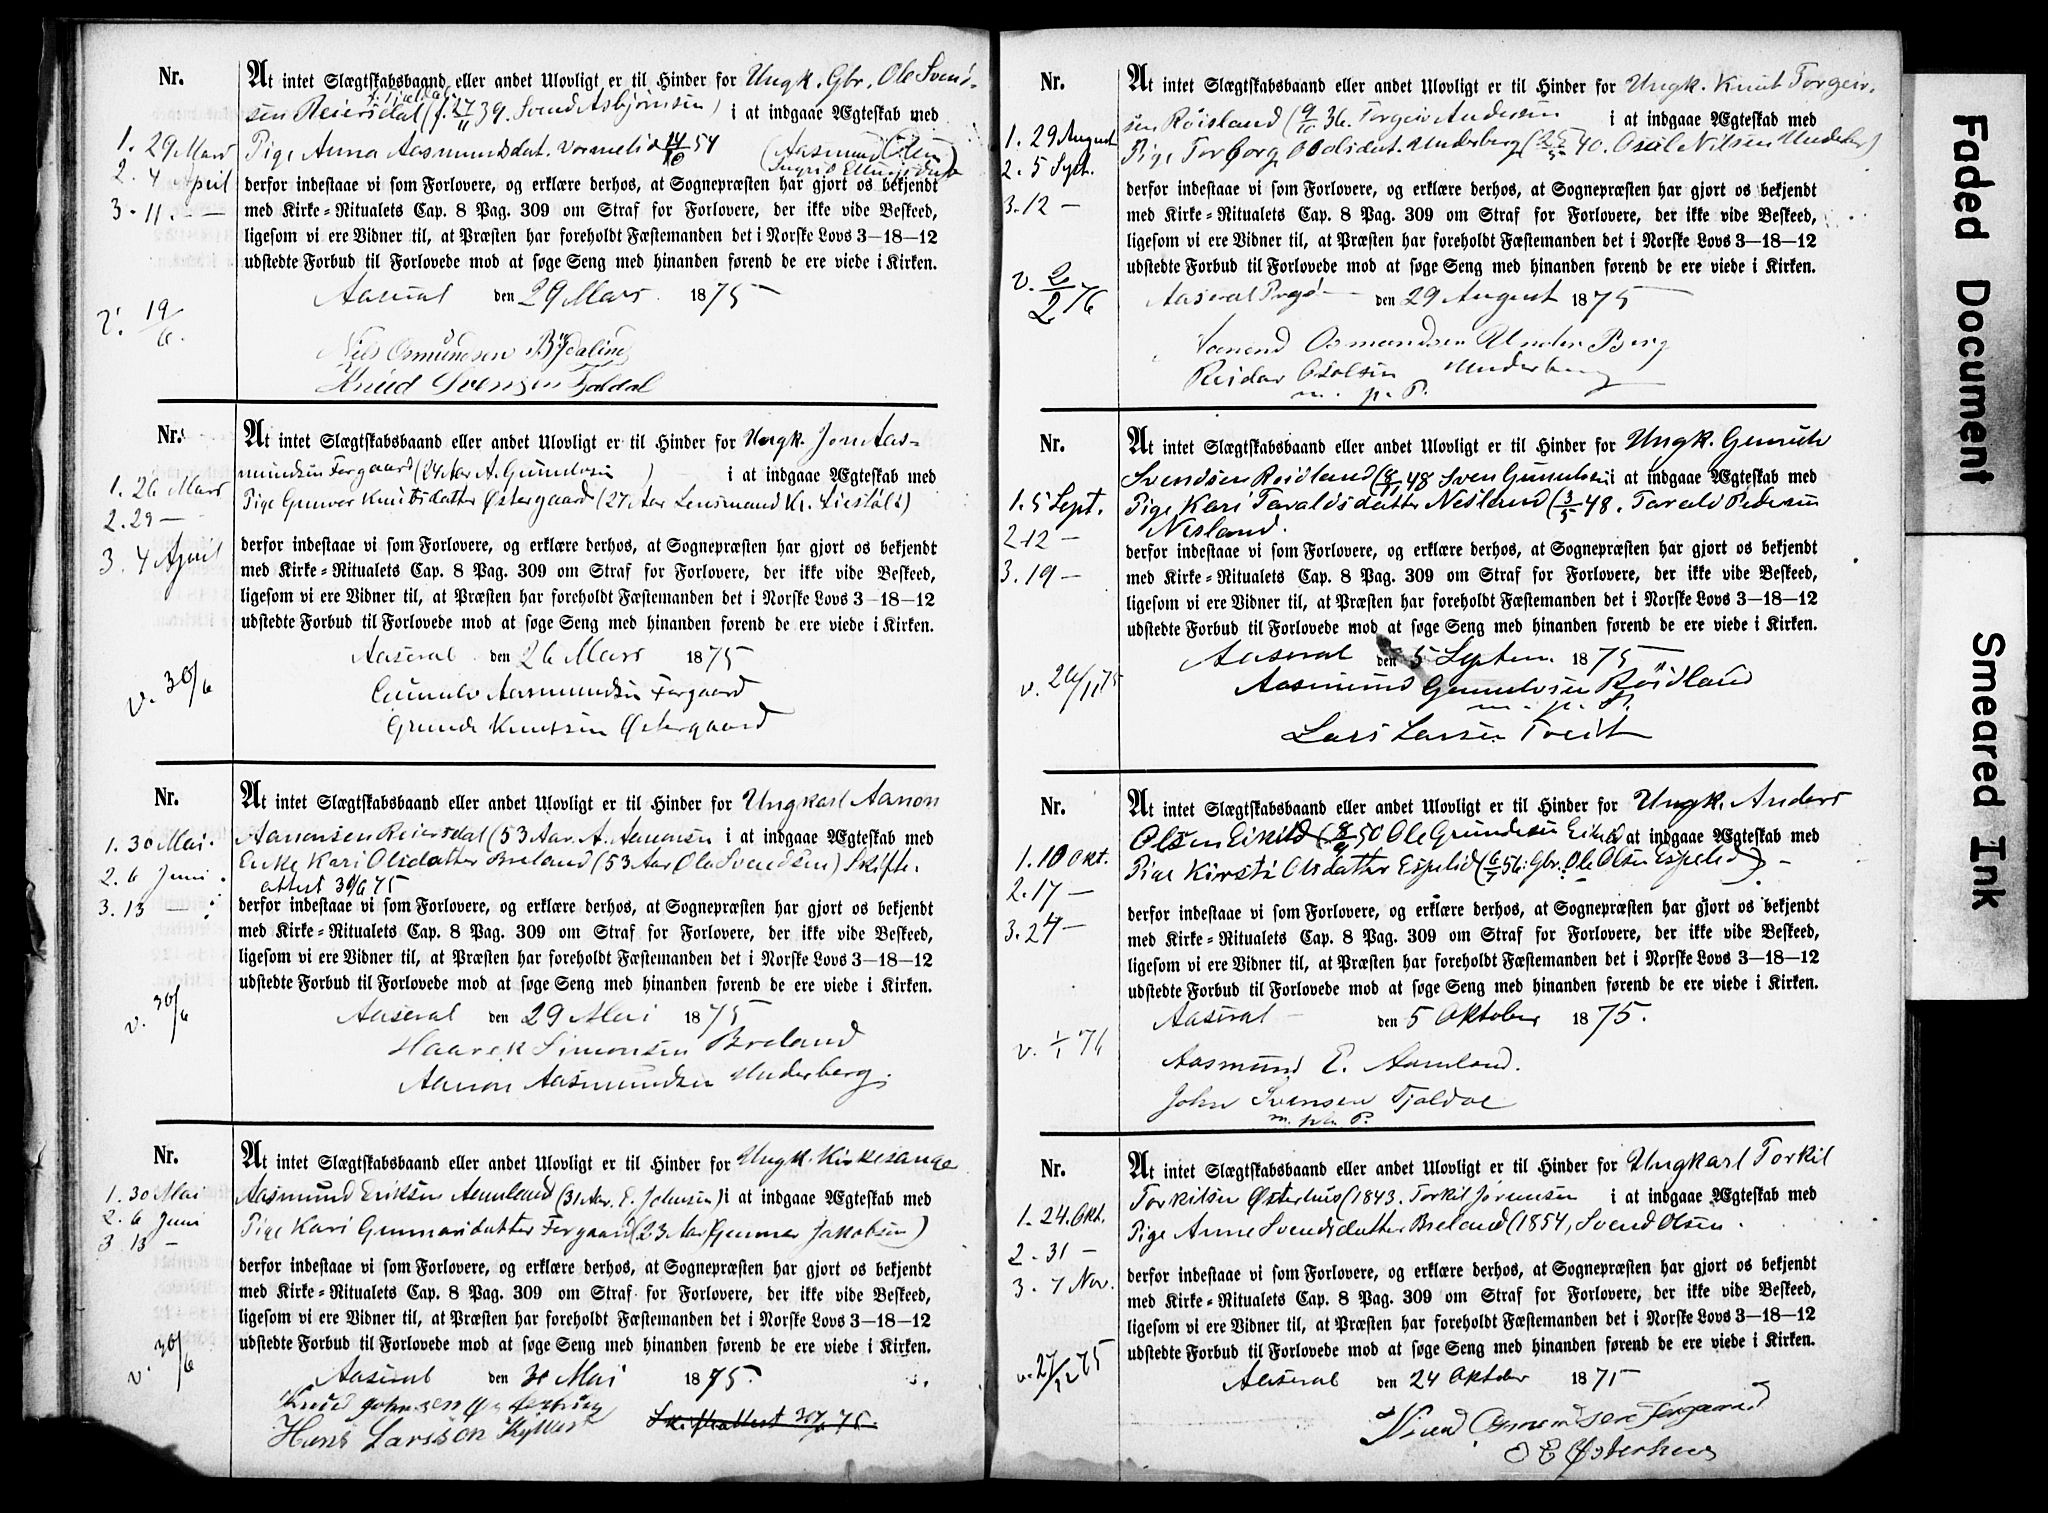 Nr.
At intet Slægtskabsbaand eller andet Ulovligt er til Hinder for Ungk. Gbr. Ole Svend-
f. Tjaldal
sen Reiersdal (f. 27/11 39. Svend Asbjørnsen) i at indgaae Ægteskab med
1. 29 Mars
Pige Anna Aasmundsdat. Vormelid 14/10 54 (Aasmund Olsen)
Ingrid Ellingsdat
2. 4 April
derfor indestaae vi som Forlovere, og erklære derhos, at Sognepræsten har gjort os bekjendt
3. 11. — —
med Kirke-Ritualets Cap. 8 Pag. 309 om Straf for Forlovere, der ikke vide Beskeed,
ligesom vi ere Vidner til, at Præsten har foreholdt Fæstemanden det i Norske Lovs 3—18—12
udstedte Forbud til Forlovede mod at søge Seng med hinanden førend de ere viede i Kirken.
Aaseral den 29 Mars 1875
v. 19/6.
Nils Osmundsen
Knud Svensen Tjaldal
Nr.
At intet Slægtskabsbaand eller andet Ulovligt er til Hinder for Ungk. Jon Aas-
mundsen Førgaard (24 Aar A. Gundersen) i at indgaae Ægteskab med
1. 26 Mars
Pige Gunvor Knudsdatter Østergaard (27 Aar Lensmand Kn. Liestøl)
2. 29 —
derfor indestaae vi som Forlovere, og erklære derhos, at Sognepræsten har gjort os bekjendt
3. 4 April
med Kirke-Ritualets Cap. 8 Pag. 309 om Straf for Forlovere, der ikke vide Beskeed,
ligesom vi ere Vidner til, at Præsten har foreholdt Fæstemanden det i Norske Lovs 3—18—12
udstedte Forbud til Forlovede mod at søge Seng med hinanden førend de ere viede i Kirken.
Aaseral den 26 Mars 1875
v. 30/6
Gunulv Aasmundsen Førgaard
Gunde Knutsen Østergaard
Nr.
At intet Slægtskabsbaand eller andet Ulovligt er til Hinder for Ungkarl Aanon
1. 30 Mai.
Aanonsen Reiersdal (53 Aar. A. Aanonsen i at indgaae Ægteskab med
2. 6 Juni.
Enke Kari Olsdatter Breland (53 Aar Ole Svendsen) Skifte-
attest 30/6 75
3. 13 —
derfor indestaae vi som Forlovere, og erklære derhos, at Sognepræsten har gjort os bekjendt
med Kirke-Ritualets Cap. 8 Pag. 309 om Straf for Forlovere, der ikke vide Beskeed,
ligesom vi ere Vidner til, at Præsten har foreholdt Fæstemanden det i Norske Lovs 3—18—12
udstedte Forbud til Forlovede mod at søge Seng med hinanden førend de ere viede i Kirken.
v. 30/6
Aaseral den 29 Mai 1875
Haarek Simonsen Breland
Aanon Aasmundsen Underberg.
Nr.
At intet Slægtskabsbaand eller andet Ulovligt er til Hinder for Ungk. Kirkesange
1. 30 Mai
Aasmund Eriksen Aamland (31 Aar. E. Johnsen) i at indgaae Ægteskab med
2. 6 Juni
Pige Kari Gunnarsdatter Førgaard (23 Aar Gunnar Jakobsen)
3. 13 —
derfor indestaae vi som Forlovere, og erklære derhos, at Sognepræsten har gjort os bekjendt
med Kirke-Ritualets Cap. 8 Pag. 309 om Straf for Forlovere, der ikke vide Beskeed,
ligesom vi ere Vidner til, at Præsten har foreholdt Fæstemanden det i Norske Lovs 3—18—12
udstedte Forbud til Forlovede mod at søge Seng med hinanden førend de ere viede i Kirken.
v. 30/6
Aaseral den 30 Mai 1875.
Knud Johnsen
Hans Larsson Kylland Skifteattest 30/6 75.
Nr.
At intet Slægtskabsbaand eller andet Ulovligt er til Hinder for Ungk. Knut Torgeir-
sen Røisland (9/10 36. Torgeir Andersen i at indgaae Ægteskab med
1. 29 August
Pige Torborg Osolsdat. Underberg (25/5 40. Osul Nilsen Underber)
2. 5 Sept.
derfor indestaae vi som Forlovere, og erklære derhos, at Sognepræsten har gjort os bekjendt
3. 12 —
med Kirke-Ritualets Cap. 8 Pag. 309 om Straf for Forlovere, der ikke vide Beskeed,
ligesom vi ere Vidner til, at Præsten har foreholdt Fæstemanden det i Norske Lovs 3—18—12
udstedte Forbud til Forlovede mod at søge Seng med hinanden førend de ere viede i Kirken.
v. 2/2 76
Aaseral Prgd. den 29 August 1875
Osmundsen Under Berg
Reidar Osolsen Underberg
m. p. P.
Nr.
At intet Slægtskabsbaand eller andet Ulovligt er til Hinder for Ungk. Gunulv
Svendsen Røidland (8/11 48 Sven Gunulvsen i at indgaae Ægteskab med
1. 5 Sept.
Pige Kari Taraldsdatter Nesland (3/5 48. Tarald Pedersen
Nesland.
2. 12 —
derfor indestaae vi som Forlovere, og erklære derhos, at Sognepræsten har gjort os bekjendt
3. 19 —
med Kirke-Ritualets Cap. 8 Pag. 309 om Straf for Forlovere, der ikke vide Beskeed,
ligesom vi ere Vidner til, at Præsten har foreholdt Fæstemanden det i Norske Lovs 3—18—12
udstedte Forbud til Forlovede mod at søge Seng med hinanden førend de ere viede i Kirken.
Aaseral den 5 Septem 1875
v. 26/11 75
Aasmund Gunulvsen Røidland
m. p. P.
Lars Larsen Tveit
Nr.
At intet Slægtskabsbaand eller andet Ulovligt er til Hinder for Ungk. Anders
Olsen Eikild (8/9 50 Ole Grundesen Eikild i at indgaae Ægteskab med
1. 10 Okt.
Pige Kirsti Olsdatter Espelid (6/1 56. Gbr. Ole Olsen Espelid)
2. 17 —
derfor indestaae vi som Forlovere, og erklære derhos, at Sognepræsten har gjort os bekjendt
3. 24 —
med Kirke-Ritualets Cap. 8 Pag. 309 om Straf for Forlovere, der ikke vide Beskeed,
ligesom vi ere Vidner til, at Præsten har foreholdt Fæstemanden det i Norske Lovs 3—18—12
udstedte Forbud til Forlovede mod at søge Seng med hinanden førend de ere viede i Kirken.
Aaseral den 5 Oktober 1875.
v. 1/1 76
Aasmund E. Aamland.
John Svensen Tjaldal
m. p. P.
Nr.
At intet Slægtskabsbaand eller andet Ulovligt er til Hinder for Ungkarl Torkil
Torkilsen Østerhus (1843. Torkil Jørensen i at indgaae Ægteskab med
1. 24. Okt.
Pige Anne Svendsdatter Breland (1854, Svend Olsen.
2. 31 —
derfor indestaae vi som Forlovere, og erklære derhos, at Sognepræsten har gjort os bekjendt
3. 7 Nov.
med Kirke-Ritualets Cap. 8 Pag. 309 om Straf for Forlovere, der ikke vide Beskeed,
ligesom vi ere Vidner til, at Præsten har foreholdt Fæstemanden det i Norske Lovs 3—18—12
udstedte Forbud til Forlovede mod at søge Seng med hinanden førend de ere viede i Kirken.
v. 27/12 75
Aaseral den 24 Oktober 1875
Osmundsen Førgaard
O E Østerhus
Faded Document
Smeared Ink